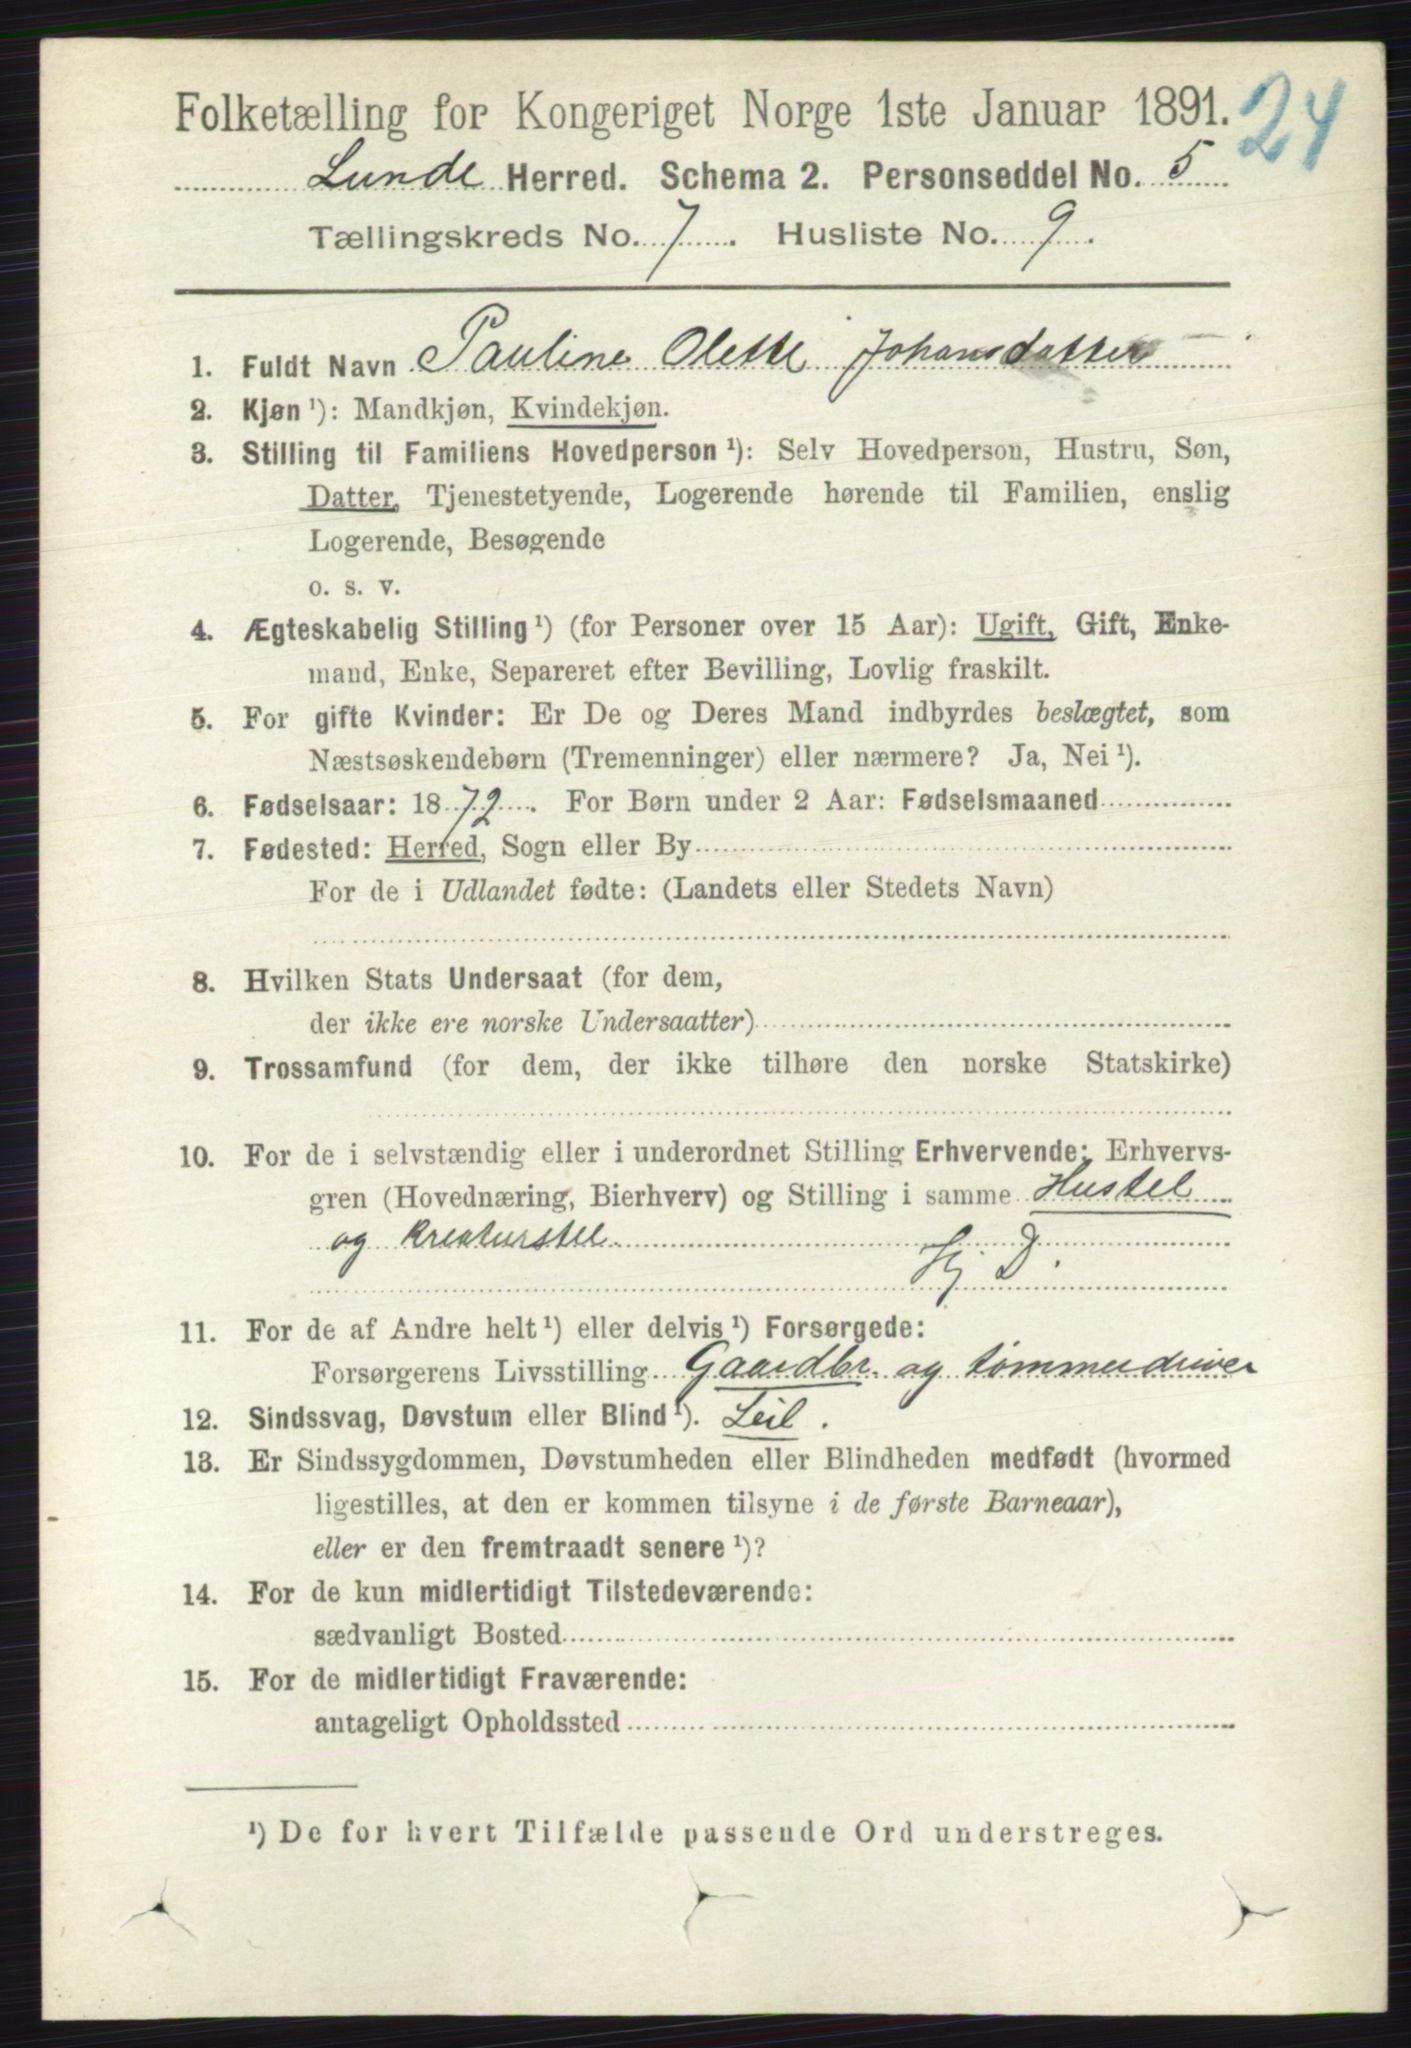 Folketælling for Kongeriget Norge 1ste Januar 1891. 24
Lunde Herred. Schema 2. Personseddel No. 5
Tællingskreds No. 7. Husliste No. 9.
1. Fuldt Navn Pauline Olette Johansdatter
2. Kjøn ¹): Mandkjøn, Kvindekjøn.
3. Stilling til Familiens Hovedperson ¹): Selv Hovedperson, Hustru, Søn,
Datter, Tjenestetyende, Logerende hørende til Familien, enslig
Logerende, Besøgende
o. s. v.
4. Ægteskabelig Stilling ¹) (for Personer over 15 Aar): Ugift, Gift, Enke-
mand, Enke, Separeret efter Bevilling, Lovlig fraskilt.
5. For gifte Kvinder: Er De og Deres Mand indbyrdes beslægtet, som
Næstsøskendebørn (Tremenninger) eller nærmere? Ja, Nei ¹).
6. Fødselsaar: 1872. For Børn under 2 Aar: Fødselsmaaned
7. Fødested: Herred, Sogn eller By
For de i Udlandet fødte: (Landets eller Stedets Navn)
8. Hvilken Stats Undersaat (for dem,
der ikke ere norske Undersaatter)
9. Trossamfund (for dem, der ikke tilhøre den norske Statskirke)
10. For de i selvstændig eller i underordnet Stilling Erhvervende: Erhvervs-
gren (Hovednæring, Bierhverv) og Stilling i samme Hustel
og Kreaturstel
Hj D.
11. For de af Andre helt ¹) eller delvis ¹) Forsørgede:
Forsørgerens Livsstilling Gaardbr. og tømmerdriver
12. Sindssvag, Døvstum eller Blind ¹).
13. Er Sindssygdommen, Døvstumheden eller Blindheden medfødt (hvormed
ligestilles, at den er kommen tilsyne i de første Barneaar),
eller er den fremtraadt senere ¹)?
14. For de kun midlertidigt Tilstedeværende:
sædvanligt Bosted
15. For de midlertidigt Fraværende:
antageligt Opholdssted
¹) De for hvert Tilfælde passende Ord understreges.